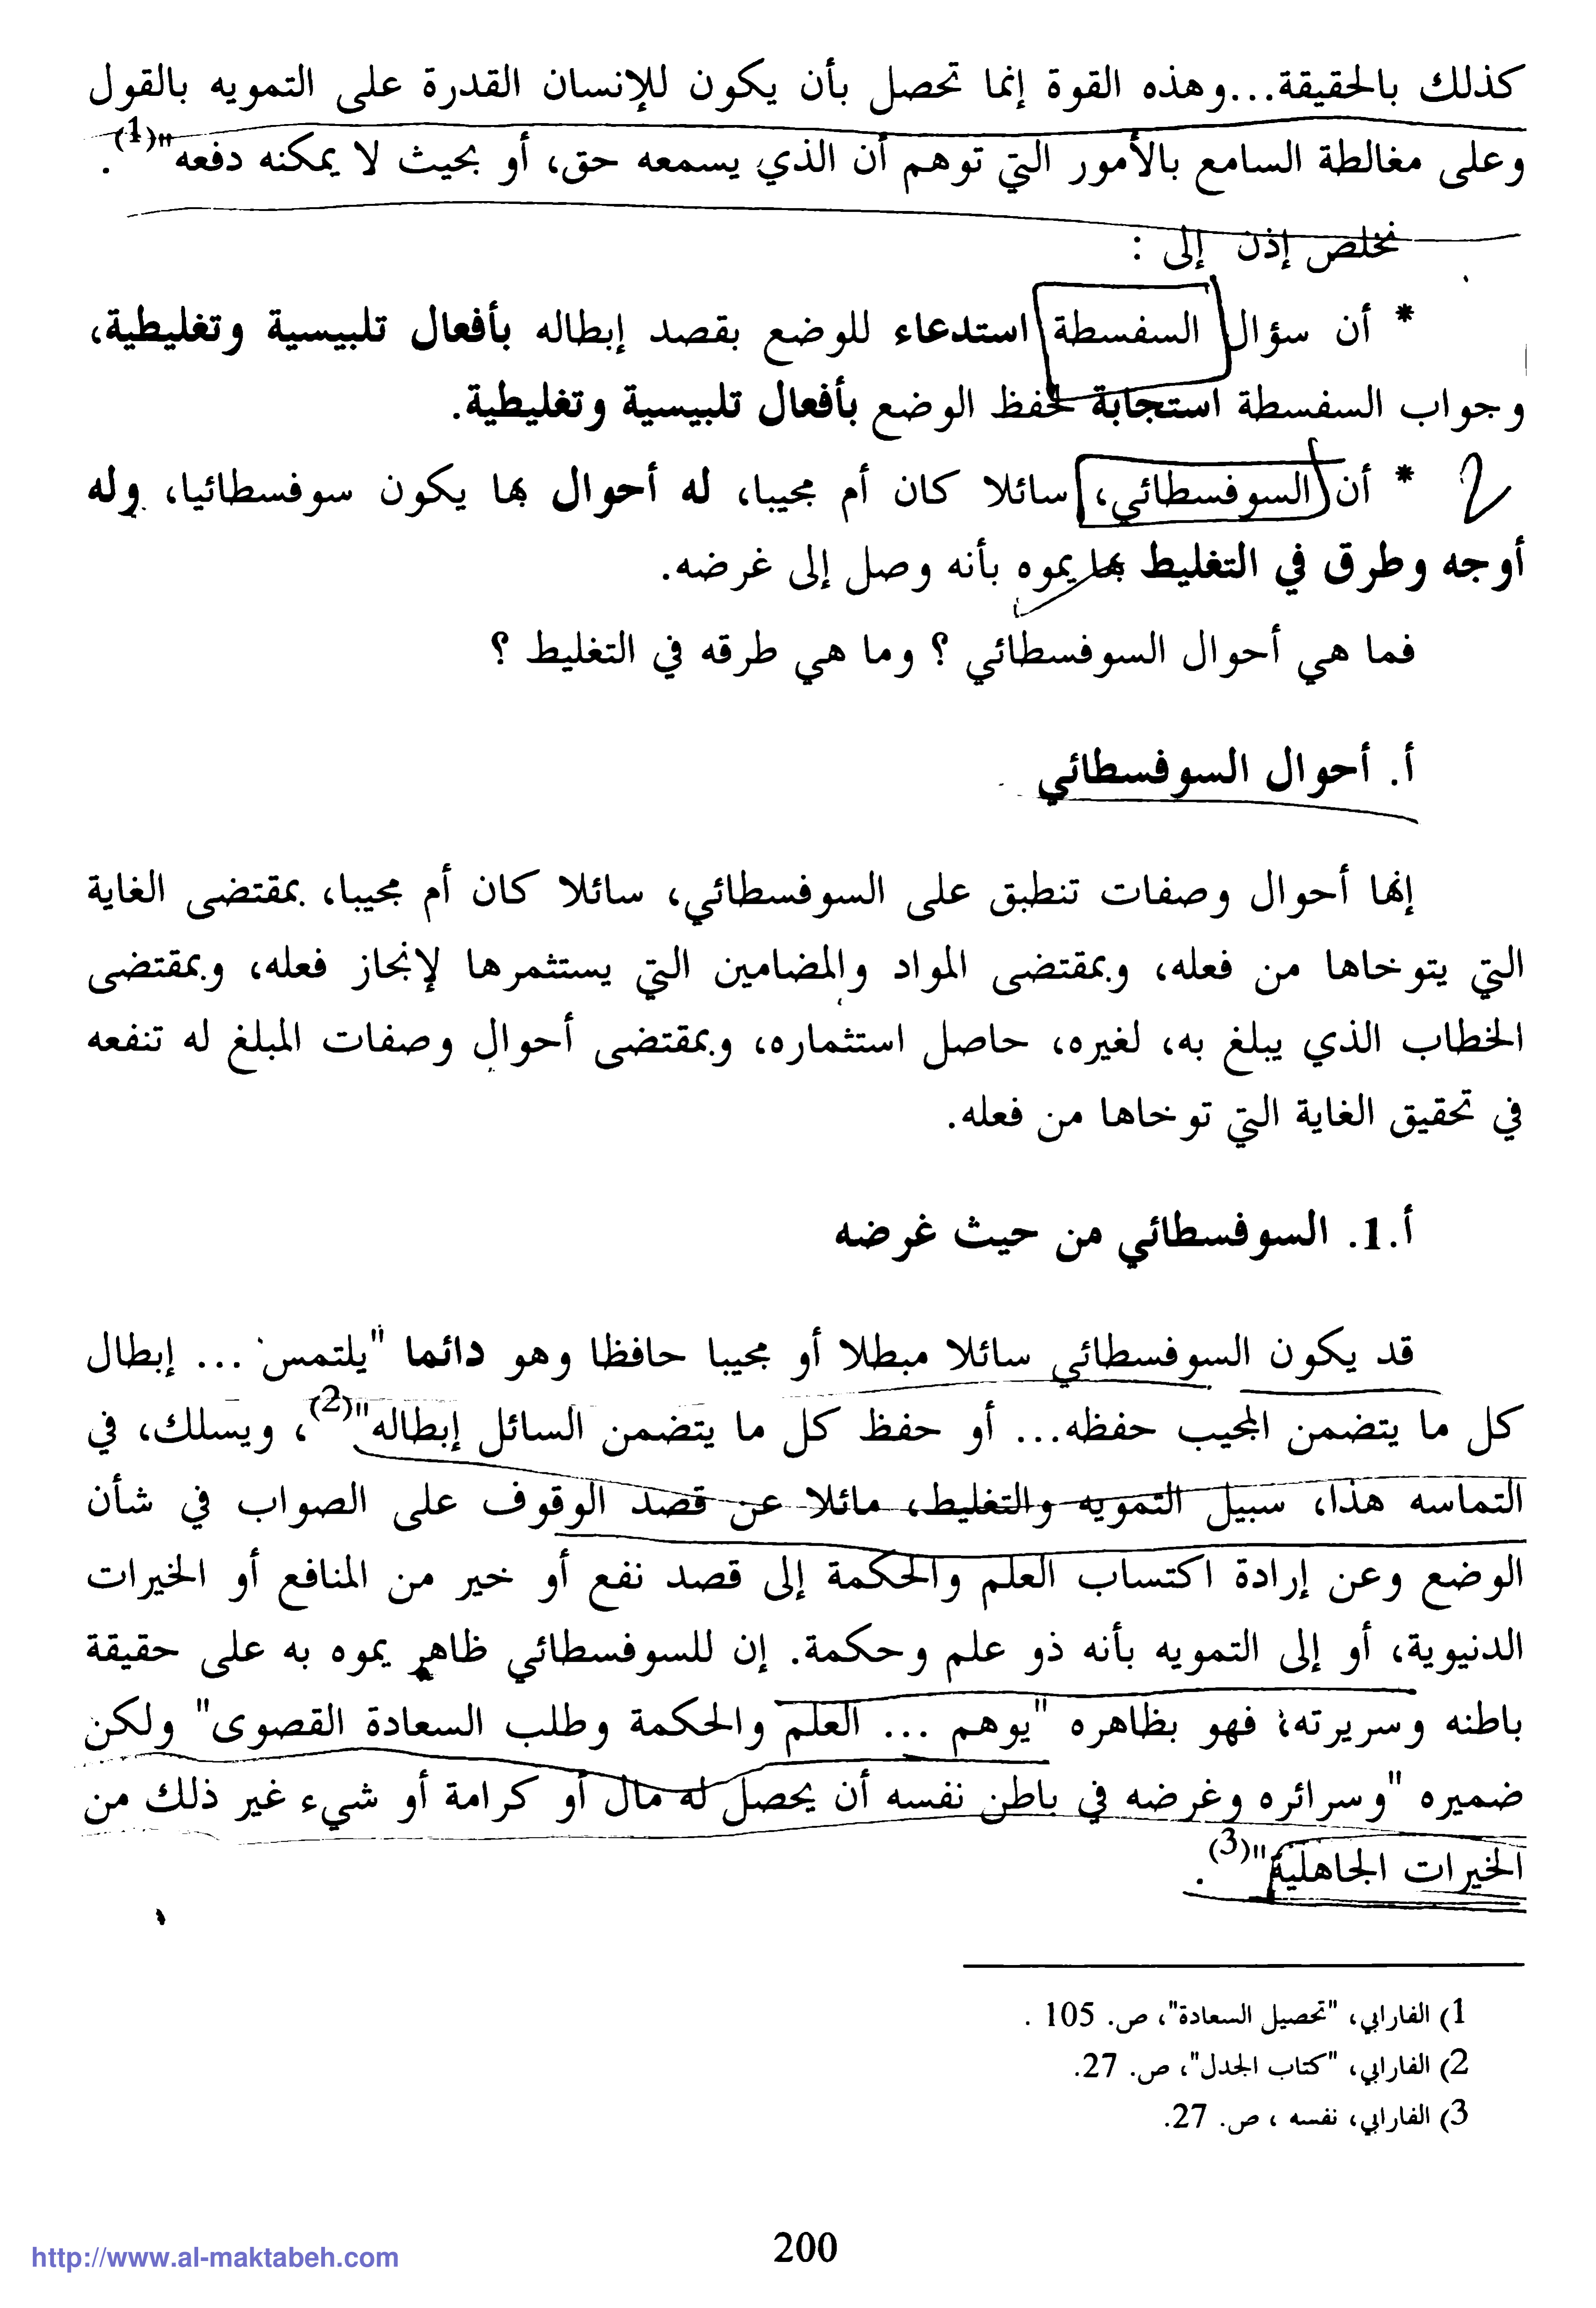 كذلك بالحقيقة...وهذه القوة إنما تحصل بأن يكون للإنسان القدرة على التمويه بالقول
وعلى مغالطة السامع بالأمور التي توهم أن الذي يسمعه حق، أو بحيث لا يمكنه دفعه"(1).
نخلص إذن إلى :
* أن سؤال السفسطة استدعاء للوضع بقصد إبطاله بأفعال تلبيسية وتغليطية،
وجواب السفسطة استجابة لحفظ الوضع بأفعال تلبيسية وتغليطية.
2 * أن السوفسطائي، سائلا كان أم مجيبا، له أحوال بها يكون سوفسطائيا، وله
أوجه وطرق في التغليط بها يموه بأنه وصل إلى غرضه.
فما هي أحوال السوفسطائي ؟ وما هي طرقه في التغليط ؟
أ. أحوال السوفسطائي
إنها أحوال وصفات تنطبق على السوفسطائي، سائلا كان أم مجيبا، بمقتضى الغاية
التي يتوخاها من فعله، وبمقتضى المواد والمضامين التي يستثمرها لإنجاز فعله، وبمقتضى
الخطاب الذي يبلغ به، لغيره، حاصل استثماره، وبمقتضى أحوال وصفات المبلغ له تنفعه
في تحقيق الغاية التي توخاها من فعله.
أ.1. السوفسطائي من حيث غرضه
قد يكون السوفسطائي سائلا مبطلا أو مجيبا حافظا وهو دائما "يلتمس ... إبطال
كل ما يتضمن المجيب حفظه... أو حفظ كل ما يتضمن السائل إبطاله"(2)، ويسلك، في
التماسه هذا، سبيل التمويه والتغليط، مائلا عن قصد الوقوف على الصواب في شأن
الوضع وعن إرادة اكتساب العلم والحكمة إلى قصد نفع أو خير من المنافع أو الخيرات
الدنيوية، أو إلى التمويه بأنه ذو علم وحكمة. إن للسوفسطائي ظاهر يموه به على حقيقة
باطنه وسريرته؛ فهو بظاهره "يوهم ... العلم والحكمة وطلب السعادة القصوى" ولكن
ضميره "وسرائره وغرضه في باطن نفسه أن يحصل له مال أو كرامة أو شيء غير ذلك من
الخيرات الجاهلية"(3).
1) الفارابي، "تحصيل السعادة"، ص. 105 .
2) الفارابي، "كتاب الجدل"، ص. 27.
3) الفارابي، نفسه ، ص. 27.
200
http://www.al-maktabeh.com